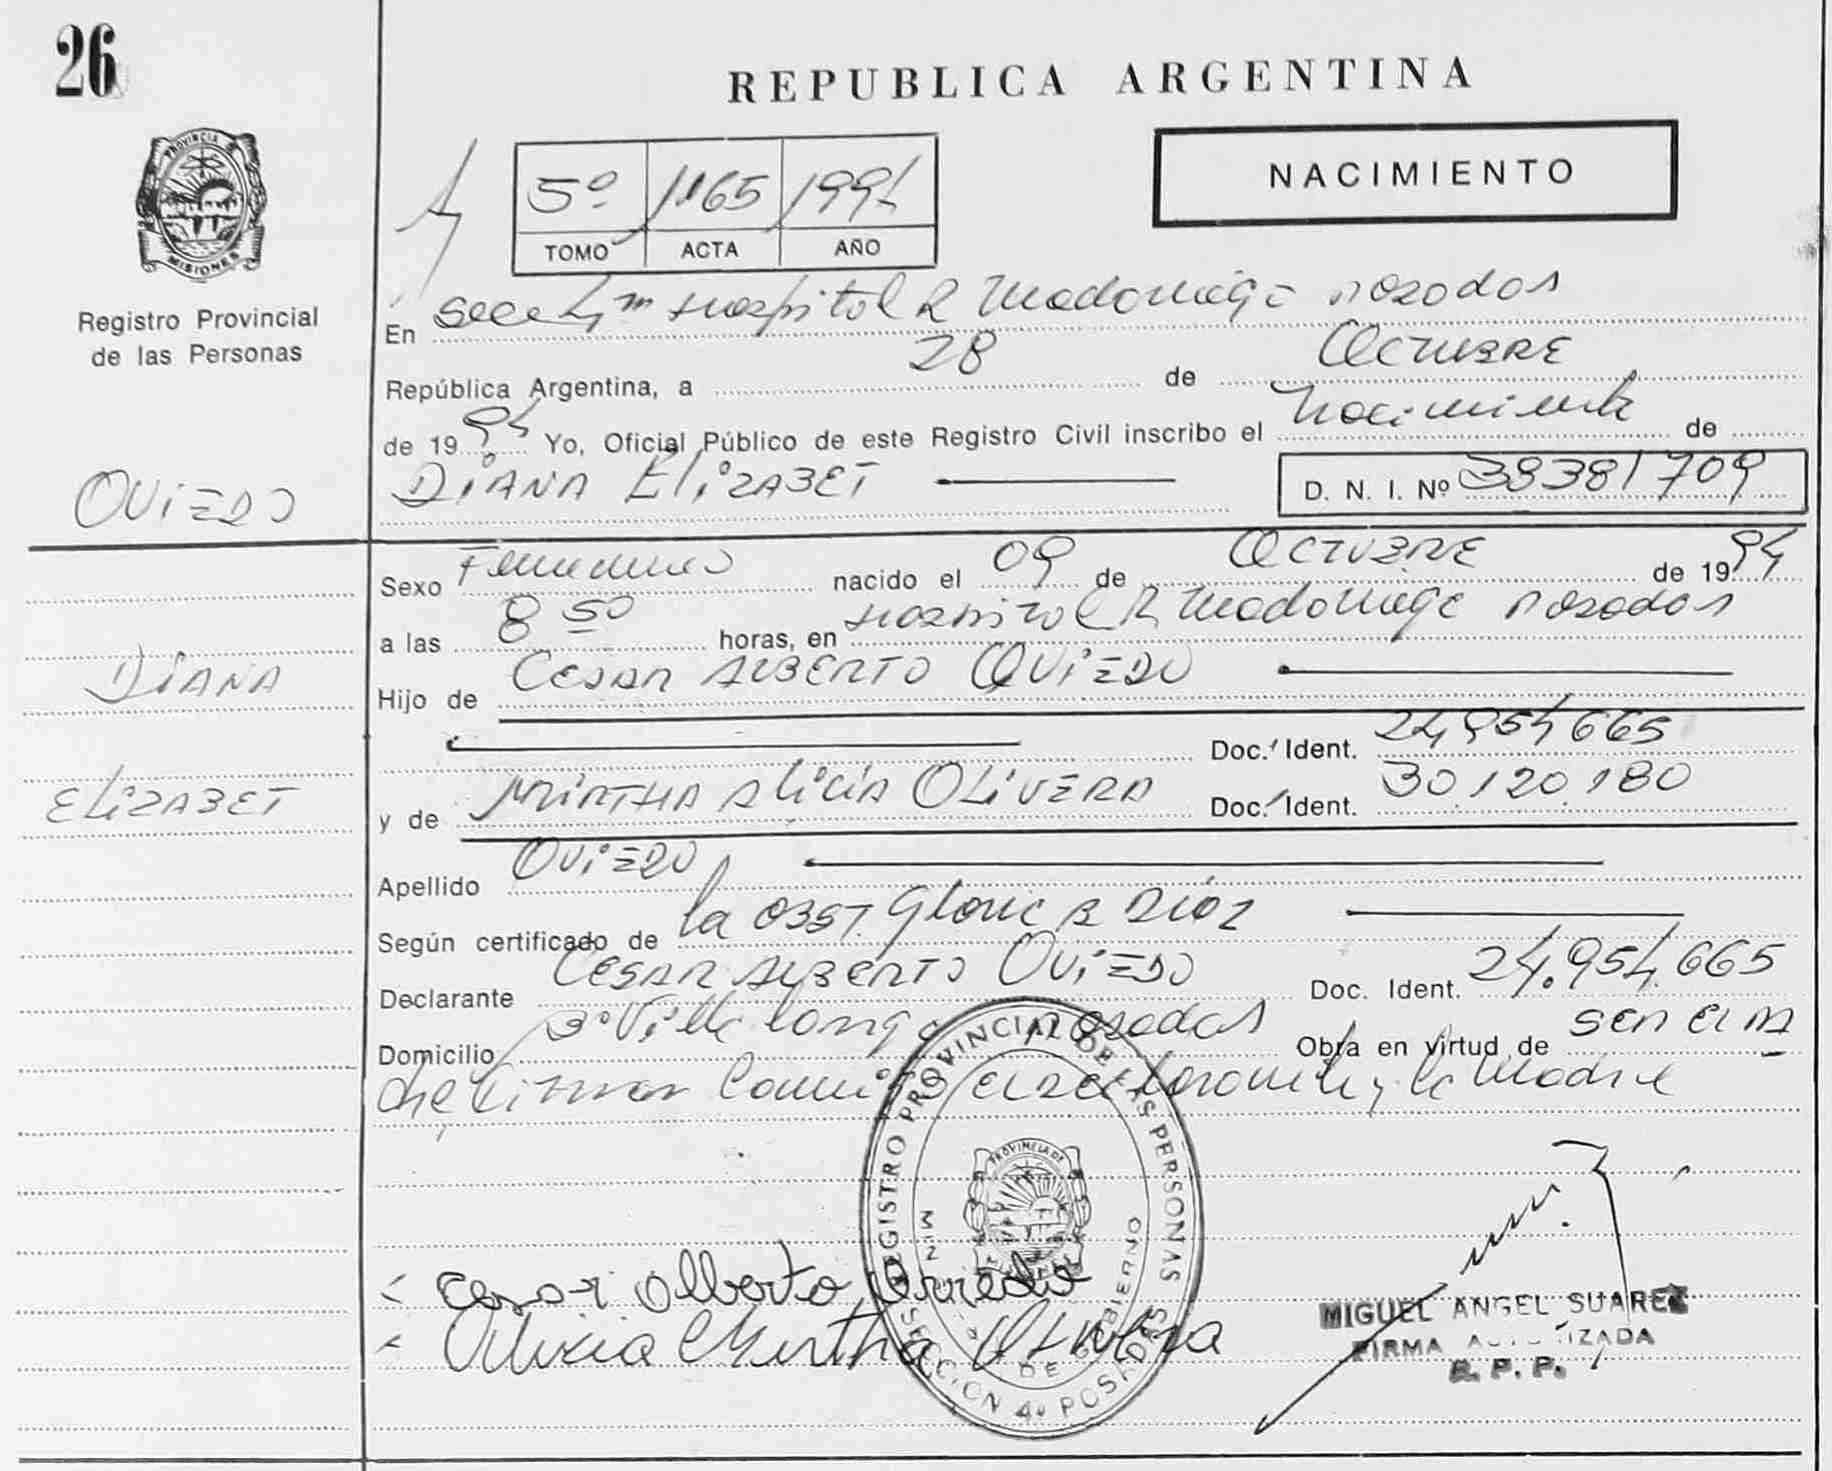 26
REPUBLICA ARGENTINA
PROVINCIA
MISIONES
Registro Provincial
de las Personas
5º 1165 1994
TOMO ACTA AÑO
NACIMIENTO
En Secc 4ª Hospital R Madariaga Posadas
República Argentina, a 28 de OCTUBRE
de 1994 Yo, Oficial Público de este Registro Civil inscribo el Nacimiento de
OVIEDO
DIANA ELIZABET
D. N. I. Nº 38381709
DIANA
ELIZABET
Sexo Femenino nacido el 09 de OCTUBRE de 1994
a las 8 50 horas, en Hospital R Madariaga Posadas
Hijo de CESAR ALBERTO OVIEDO
Doc. Ident. 24,954665
y de MIRTHA ALICIA OLIVERA Doc. Ident. 30.120.180
Apellido OVIEDO
Según certificado de la OBST. Gloria R Diaz
Declarante CESAR ALBERTO OVIEDO Doc. Ident. 24.954.665
Domicilio Bº Villa Posadas Obra en virtud de
y la Madre
REGISTRO PROVINCIAL DE LAS PERSONAS
PROVINCIA DE
DE GOBIERNO
SECCION 4ª POSADAS
Cesar Alberto Oviedo
Alicia Mirtha Olivera
MIGUEL ANGEL SUAREZ
FIRMA AUTORIZADA
R. P. P.